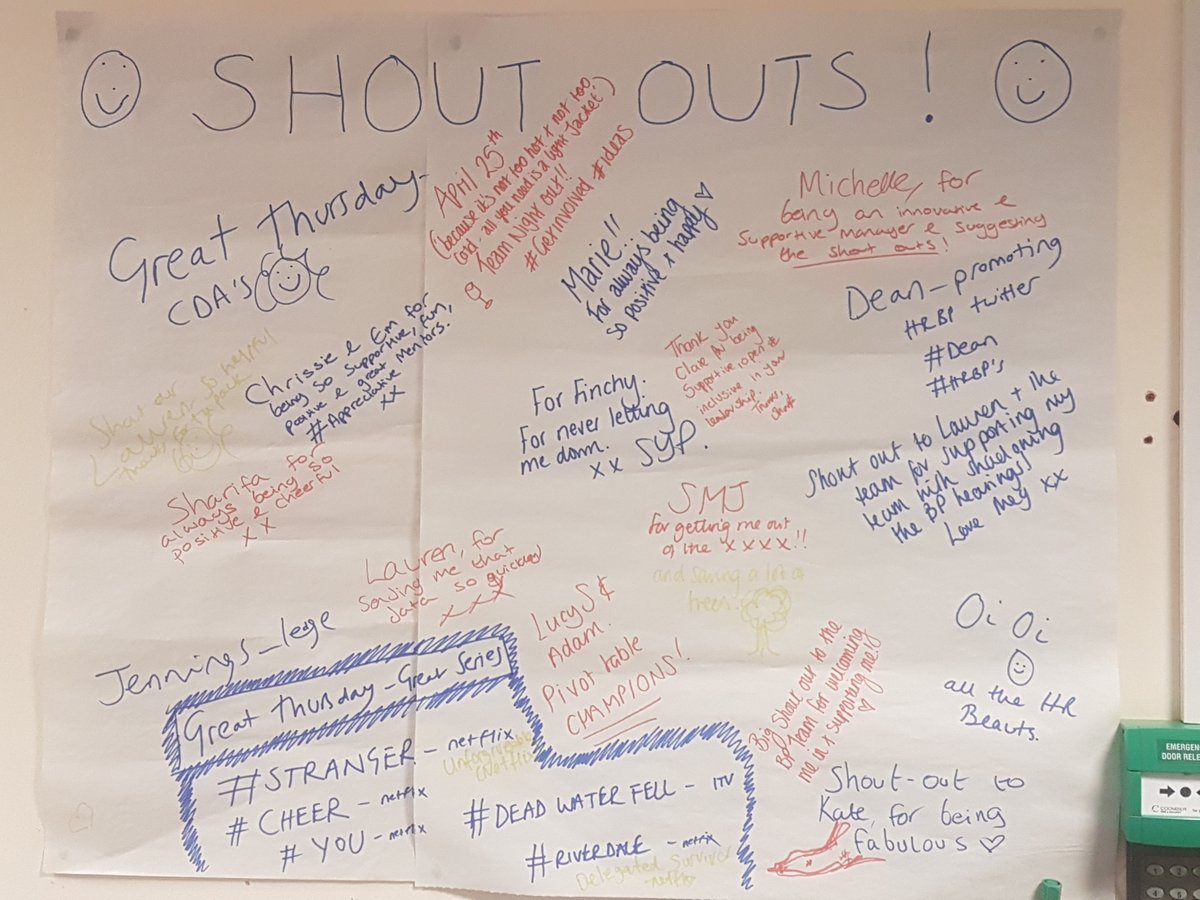 SHOUT OUTS!
Great Thursday -
CDA's
April 25th
(because it's not too hot & not too
cold, all you need is a light jacket!)
Team Night out!!
#GetInvolved #Ideas
Marie!!
for always being
so positive & happy
Michelle, for
being an innovative &
supportive manager & suggesting
the shout outs!
Dean - promoting
HRBP twitter
#Dean
#HRBP's
Shout out
Lauren so happy
Chrissie & Em for
being so supportive, fun,
positive & great mentors.
#Appreciative
xx
For Finchy.
For never letting
me down.
xx SYP.
Thank you
Clare for being
supportive, open &
inclusive in your
leadership.
Shout out to Lauren + the
team for supporting my
team with shadowing
the BP hearings
Love Meg xx
Sharifa for
always being so
positive & cheerful
xx
SMJ
for getting me out
of the xxxx!!
and saving a lot of
trees!
Lauren, for
sending me that
data so quickly!
xxx
Lucy S &
Adam.
Pivot table
CHAMPIONS!
Oi Oi
all the HR
Beauts.
Jennings - lege
Big Shout out to the
BP Team for welcoming
me in & supporting me!
Great Thursday - Great Series
#STRANGER - netflix
Unforgiveable
(Netflix)
#CHEER - netflix
#YOU - netflix
#DEAD WATER FELL - ITV
#RIVERDALE - netflix
Delegated Survivor
- netflix
Shout-out to
Kate, for being
fabulous
EMERGENCY
DOOR RELE